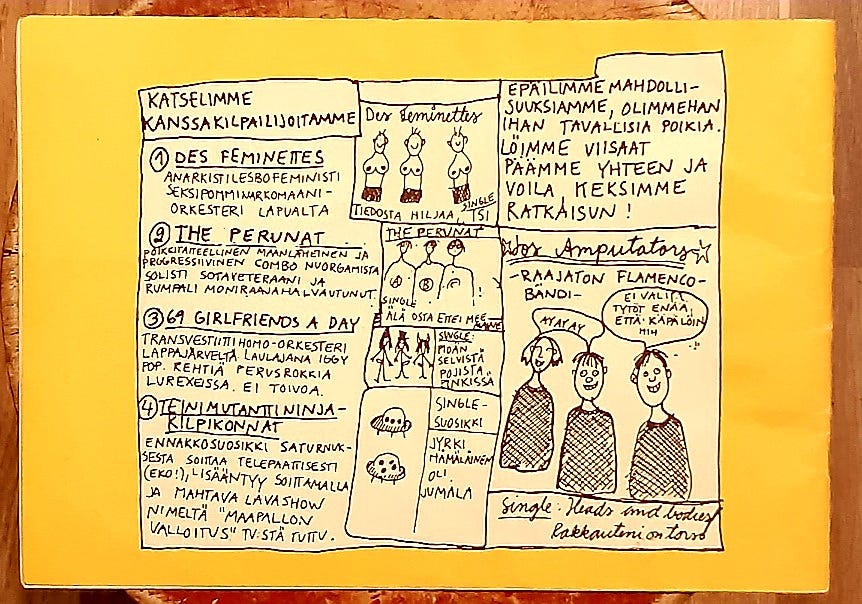 KATSELIMME
KANSSAKILPAILIJOITAMME
① DES FEMINETTES
ANARKISTILESBOFEMINISTI
SEKSIPOMMINARKOMAANI-
ORKESTERI LAPUALTA
② THE PERUNAT
POIKKITAITEELLINEN MAANLÄHEINEN JA
PROGRESSIIVINEN COMBO NUORGAMISTA
SOLISTI SOTAVETERAANI JA
RUMPALI MONIRAAJAHALVAUTUNUT.
③ 69 GIRLFRIENDS A DAY
TRANSVESTIITTIHOMO-ORKESTERI
LAPPAJÄRVELTÄ LAULAJANA IGGY
POP. REHTIÄ PERUSROKKIA
LUREXEISSA. EI TOIVOA.
④ TEINIMUTANTTININJA-
KILPIKONNAT
ENNAKKOSUOSIKKI SATURNUK-
SESTA SOITTAA TELEPAATTISESTI
(EKO!), LISÄÄNTYY SOITTAMALLA
JA MAHTAVA LAVASHOW
NIMELTÄ "MAAPALLON
VALLOITUS" TV:STÄ TUTTU.
Des Feminettes
SINGLE
TIEDOSTA HILJAA, TSI
THE PERUNAT
A B C !
SINGLE
ÄLÄ OSTA ETTEI MEE
MAINE
SINGLE:
MÖÄN
SELVISTÄ
POJISTA
PINKISSÄ
SINGLE-
SUOSIKKI
JYRKI
HÄMÄLÄINEN
OLI
JUMALA
EPÄILIMME MAHDOLLI-
SUUKSIAMME, OLIMMEHAN
IHAN TAVALLISIA POIKIA.
LÖIMME VIISAAT
PÄÄMME YHTEEN JA
VOILA KEKSIMME
RATKAISUN!
Los Amputators
-RAAJATON FLAMENCO-
BÄNDI-
AYAYAY
EI VALITA
TYTÖT ENÄÄ,
ETTÄ KÄPÄLÖIN
HIH
Single: Heads and bodies
Rakkauteni on torso